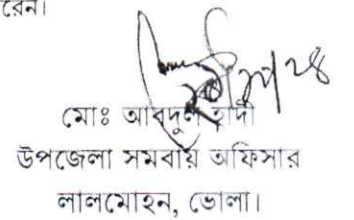 রেন।
মোঃ আবদুল হাদী
উপজেলা সমবায় অফিসার
লালমোহন, ভোলা।